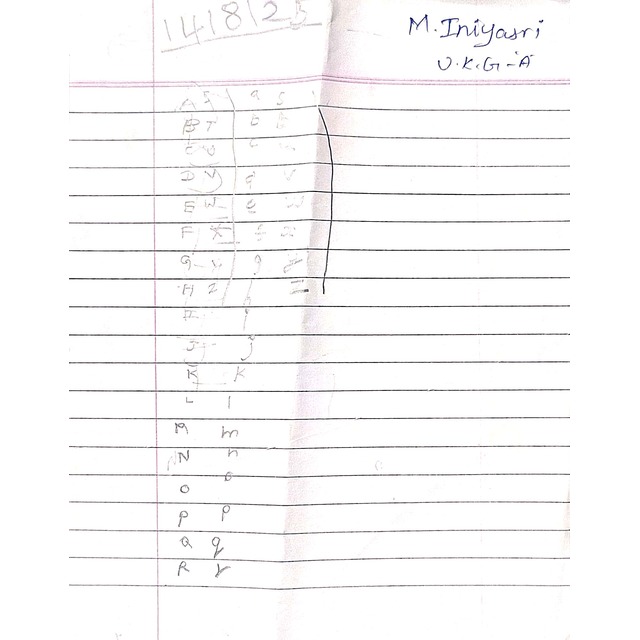 14/8/25
M. Iniyasri
U.K.G-A
A S a S
B T b
C U c
D V d V
E W e W
F X f
G Y g
H Z h
I i
J j
K k
L l
M m
N n
O o
P p
Q q
R r